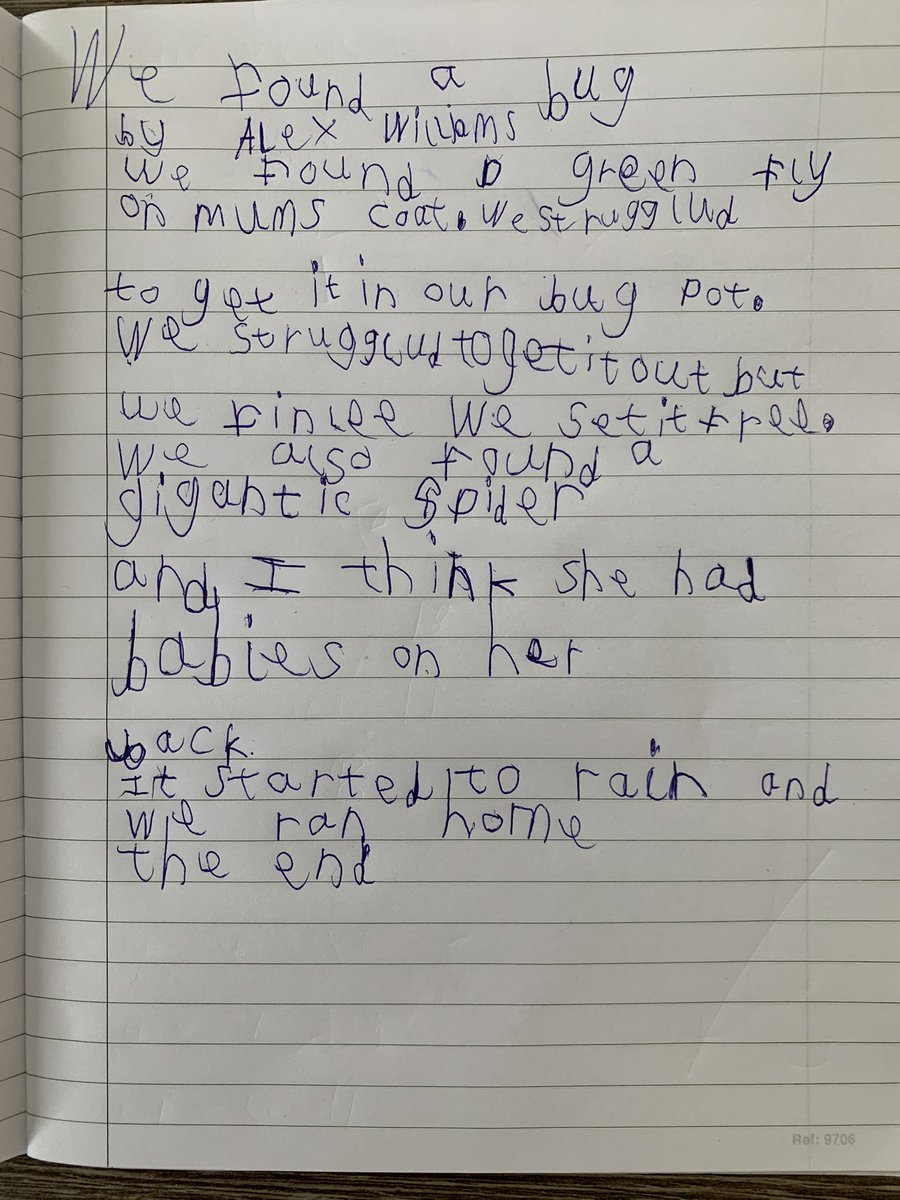 We found a bug
by ALex Williams
we found a green fly
on mums coat. We strugglud
to get it in our bug pot.
We strugglud to get it out but
we finlee We set it free.
We also found a
gigantic Spider
and I think she had
babies on her
back.
It started to rain and
we ran home
the end
Ref: 9706